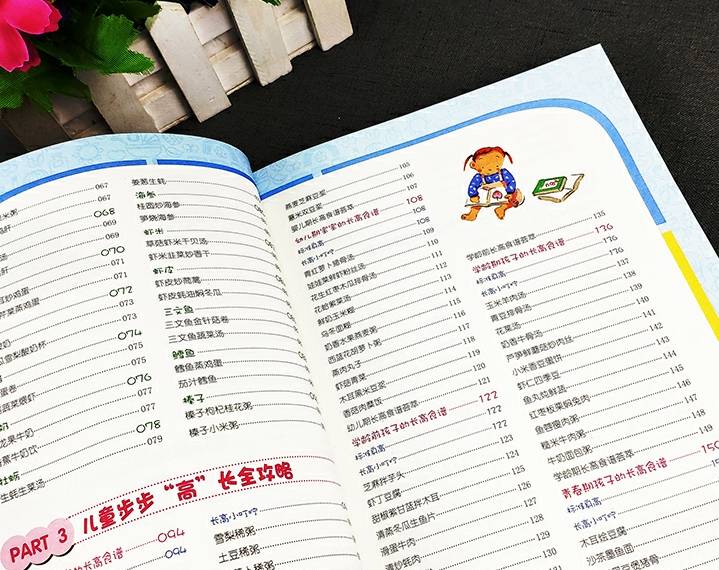 067
米粥
068
070
071
071
072
芹菜鸡蛋
073
074
雪梨酸奶杯
075
076
蔬菜煨虾
077
078
龙果牛奶
香蕉牛奶饮
079
牡蛎
生蚝生菜汤
姜葱生蚝
海参
桂圆炒海参
笋烧海参
虾米
草菇虾米干贝汤
虾米韭菜炒香干
虾皮
虾皮炒茼蒿
虾皮蚝油焖冬瓜
三文鱼
三文鱼金针菇卷
三文鱼蔬菜汤
鳕鱼
鳕鱼蒸鸡蛋
茄汁鳕鱼
榛子
榛子枸杞桂花粥
榛子小米粥
PART 3 儿童步步“高”长全攻略
长高食谱 094
094
长高小叮咛
雪梨稀粥
土豆稀粥
105
燕麦芝麻豆浆 106
薏米双豆浆 107
婴儿期长高食谱荟萃 108
幼儿期宝宝的长高食谱 108
标准身高 108
长高小叮咛 109
青红萝卜排骨汤
娃娃菜鲜虾粉丝汤
花生红枣木瓜排骨汤
花蛤紫菜汤
鲜奶玉米糊
乌冬面糊
奶香水果燕麦粥
西蓝花胡萝卜粥
蒸肉丸子 118
虾菇青菜 119
木耳黑米豆浆 120
香菇肉糜饭 121
幼儿期长高食谱荟萃 121
学龄前孩子的长高食谱 122
标准身高 122
长高小叮咛
芝麻拌芋头 124
虾丁豆腐 125
甜椒紫甘蓝拌木耳 126
清蒸冬瓜生鱼片 127
滑蛋牛肉 128
清炒虾肉 129
135
学龄前长高食谱荟萃 136
学龄期孩子的长高食谱 136
标准身高 137
长高小叮咛 138
玉米羊肉汤 139
青豆排骨汤 140
花菜汤 141
奶香牛骨汤 142
芦笋鲜蘑菇炒肉丝 143
小米香豆蛋饼 144
虾仁四季豆 145
鱼丸烧鲜蔬 146
红枣板栗焖兔肉 147
鱼蓉瘦肉粥 148
糙米牛肉粥 149
牛奶面包粥
学龄期长高食谱荟萃 150
青春期孩子的长高食谱
标准身高
长高小叮咛
木耳烩豆腐
沙茶墨鱼面